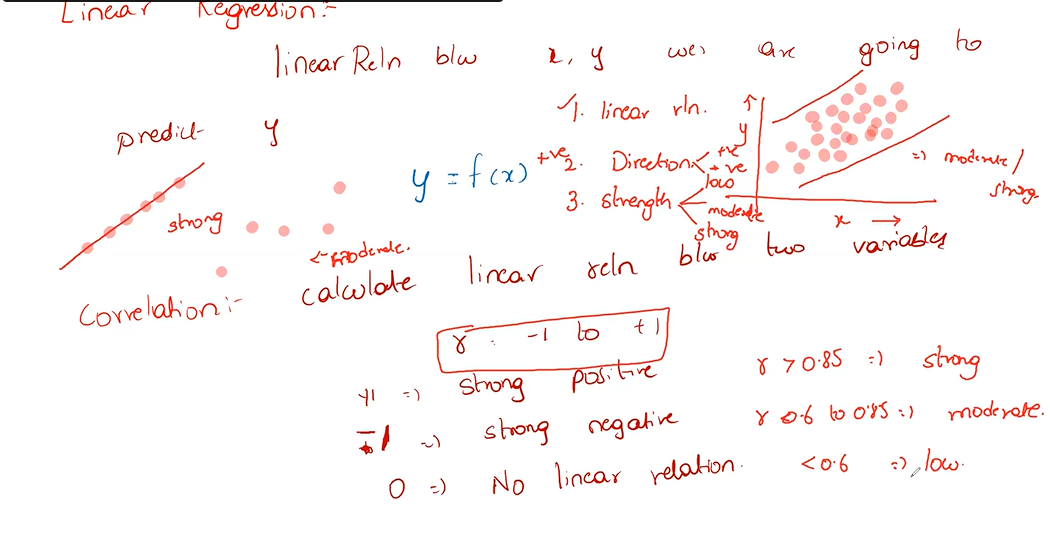 Linear Regression:-
linear Reln b/w x, y we are going to
predict y
y = f(x)
+ve
1. linear rln.
2. Direction +ve
+ve
3. strength low
moderate
strong
y
x →
=) moderate/
strong
strong
<- moderate.
Correlation:- calculate linear reln b/w two variables
r : -1 to +1
+1 =) strong positive
-1 =) strong negative
0 =) No linear relation.
r > 0.85 =) strong
r 0.6 to 0.85 =) moderate.
<0.6 =) low.